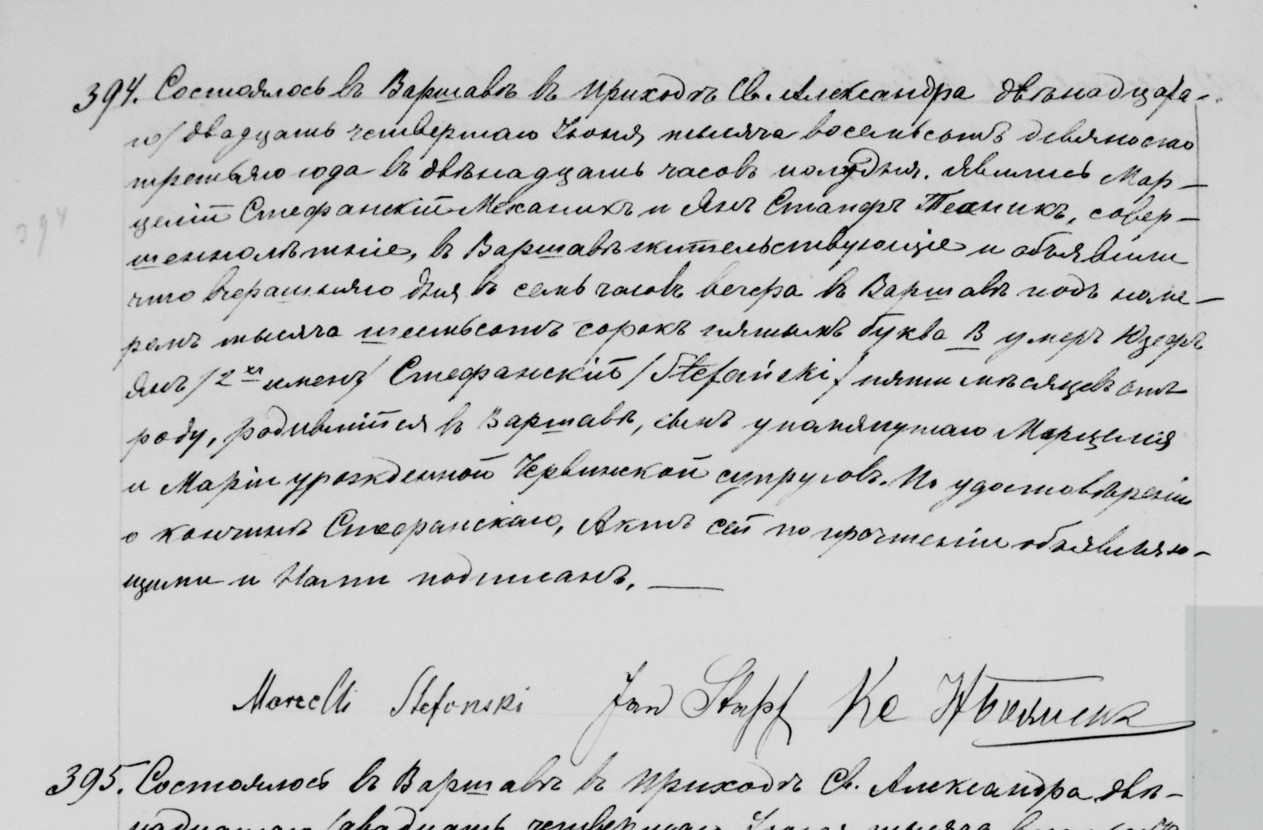 394. Состоялось въ Варшавѣ въ Приходѣ Св. Александра двѣнадцата-
го/двадцать четвертаго Іюня тысяча восемьсотъ девяносто
третьяго года въ двѣнадцать часовъ полудня. Явились Мар-
целій Стефанскій Механикъ и Янъ Стапфъ Техникъ, совер-
шеннолѣтніе, въ Варшавѣ жительствующіе и объявили
что вчерашняго дня въ семь часовъ вечера въ Варшавѣ подъ номе-
ромъ тысяча шестьсотъ сорокъ пятымъ буква В умеръ Юзефъ
Янъ /2хъ именъ/ Стефанскій /Stefański/ пяти мѣсяцевъ отъ
роду, родившійся въ Варшавѣ, сынъ упомянутаго Марцелія
и Маріи урожденной Червинской супруговъ. По удостовѣреніи
о кончинѣ Стефанскаго, Актъ сей по прочтеніи объявляю-
щими и Нами подписанъ. —
394
Marcelli Stefanski Jan Stapf
395. Состоялось въ Варшавѣ въ Приходѣ Св. Александра двѣ-
надцатаго /двадцать четвертаго Іюня тысяча